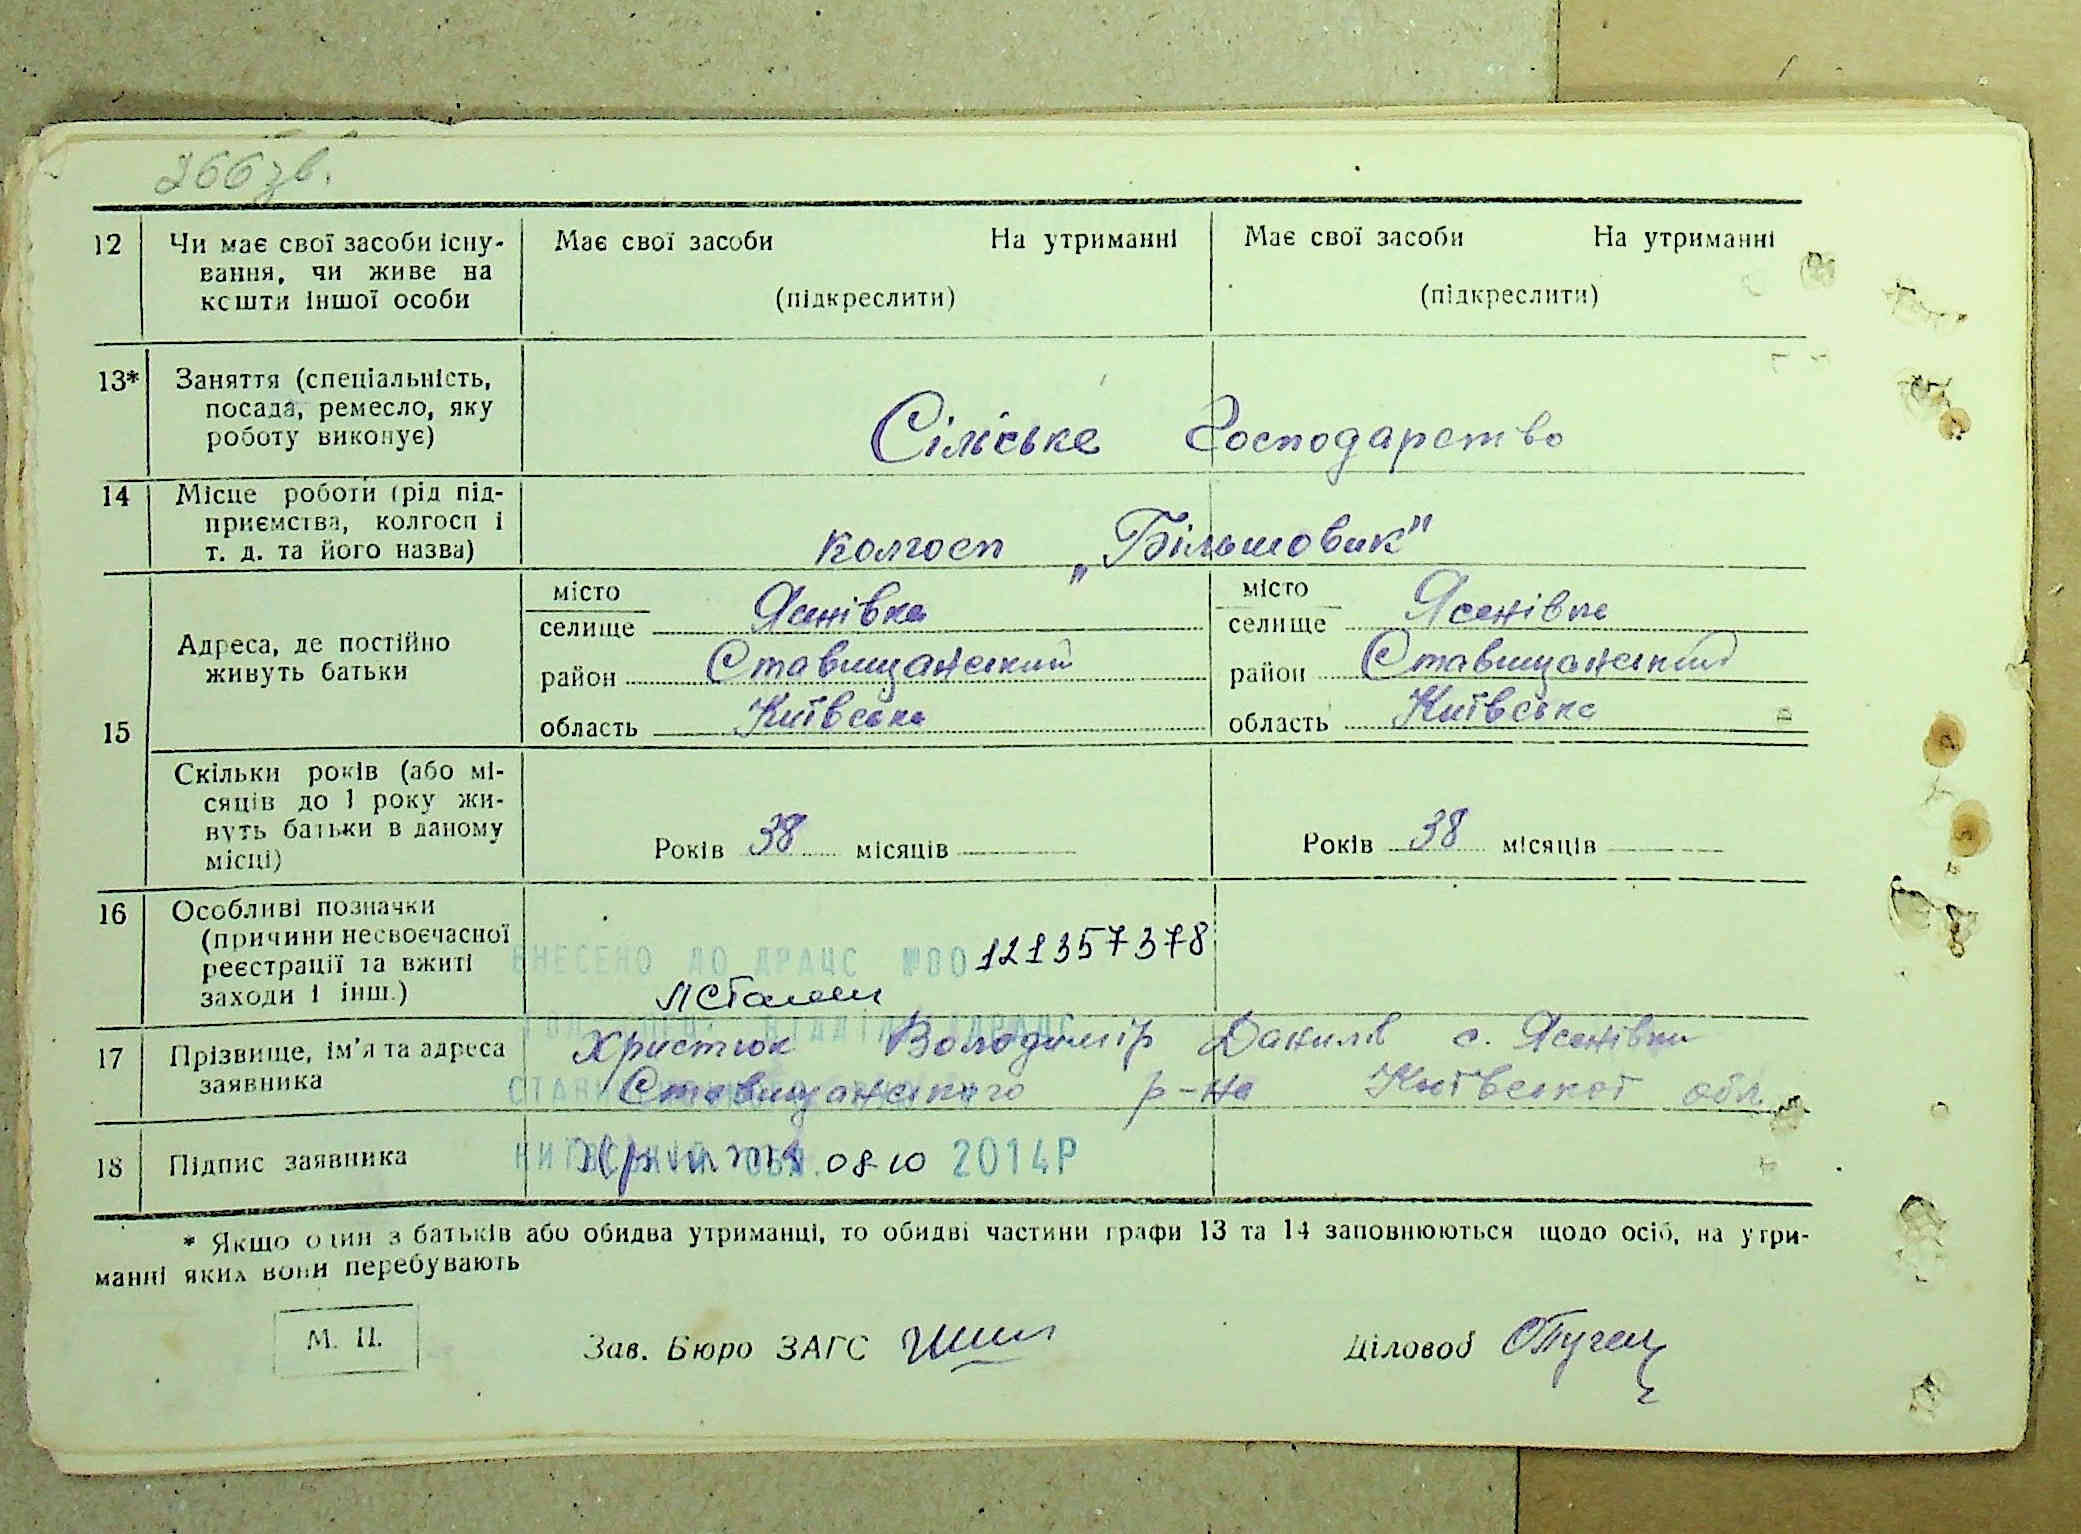 266 зв.
12 Чи має свої засоби існу- Має свої засоби На утриманні Має свої засоби На утриманні
вання, чи живе на
кошти іншої особи (підкреслити) (підкреслити)
13* Заняття (спеціальність,
посада, ремесло, яку
роботу виконує) Сільське Господарство
14 Місце роботи (рід під-
приємства, колгосп і
т. д. та його назва) колгосп „Більшовик"
15 Адреса, де постійно
живуть батьки
місто
селище Ясенівка
район Ставищанський
область Київська
місто
селище Ясенівка
район Ставищанський
область Київська
Скільки років (або мі-
сяців до 1 року жи-
вуть батьки в даному
місці)
Років 38 місяців Років 38 місяців
16 Особливі позначки
(причини несвоєчасної
реєстрації та вжиті
заходи і інш.)
ВНЕСЕНО ДО ДРАЦС №00121357378
17 Прізвище, ім'я та адреса
заявника
Христюк Володимір Данилів с. Ясенівки
Ставищанского р-на Київської обл.
18 Підпис заявника
08 10 2014Р
* Якщо один з батьків або обидва утриманці, то обидві частини графи 13 та 14 заповнюються щодо осіб, на утри-
манні яких вони перебувають
М. П. Зав. Бюро ЗАГС Діловод